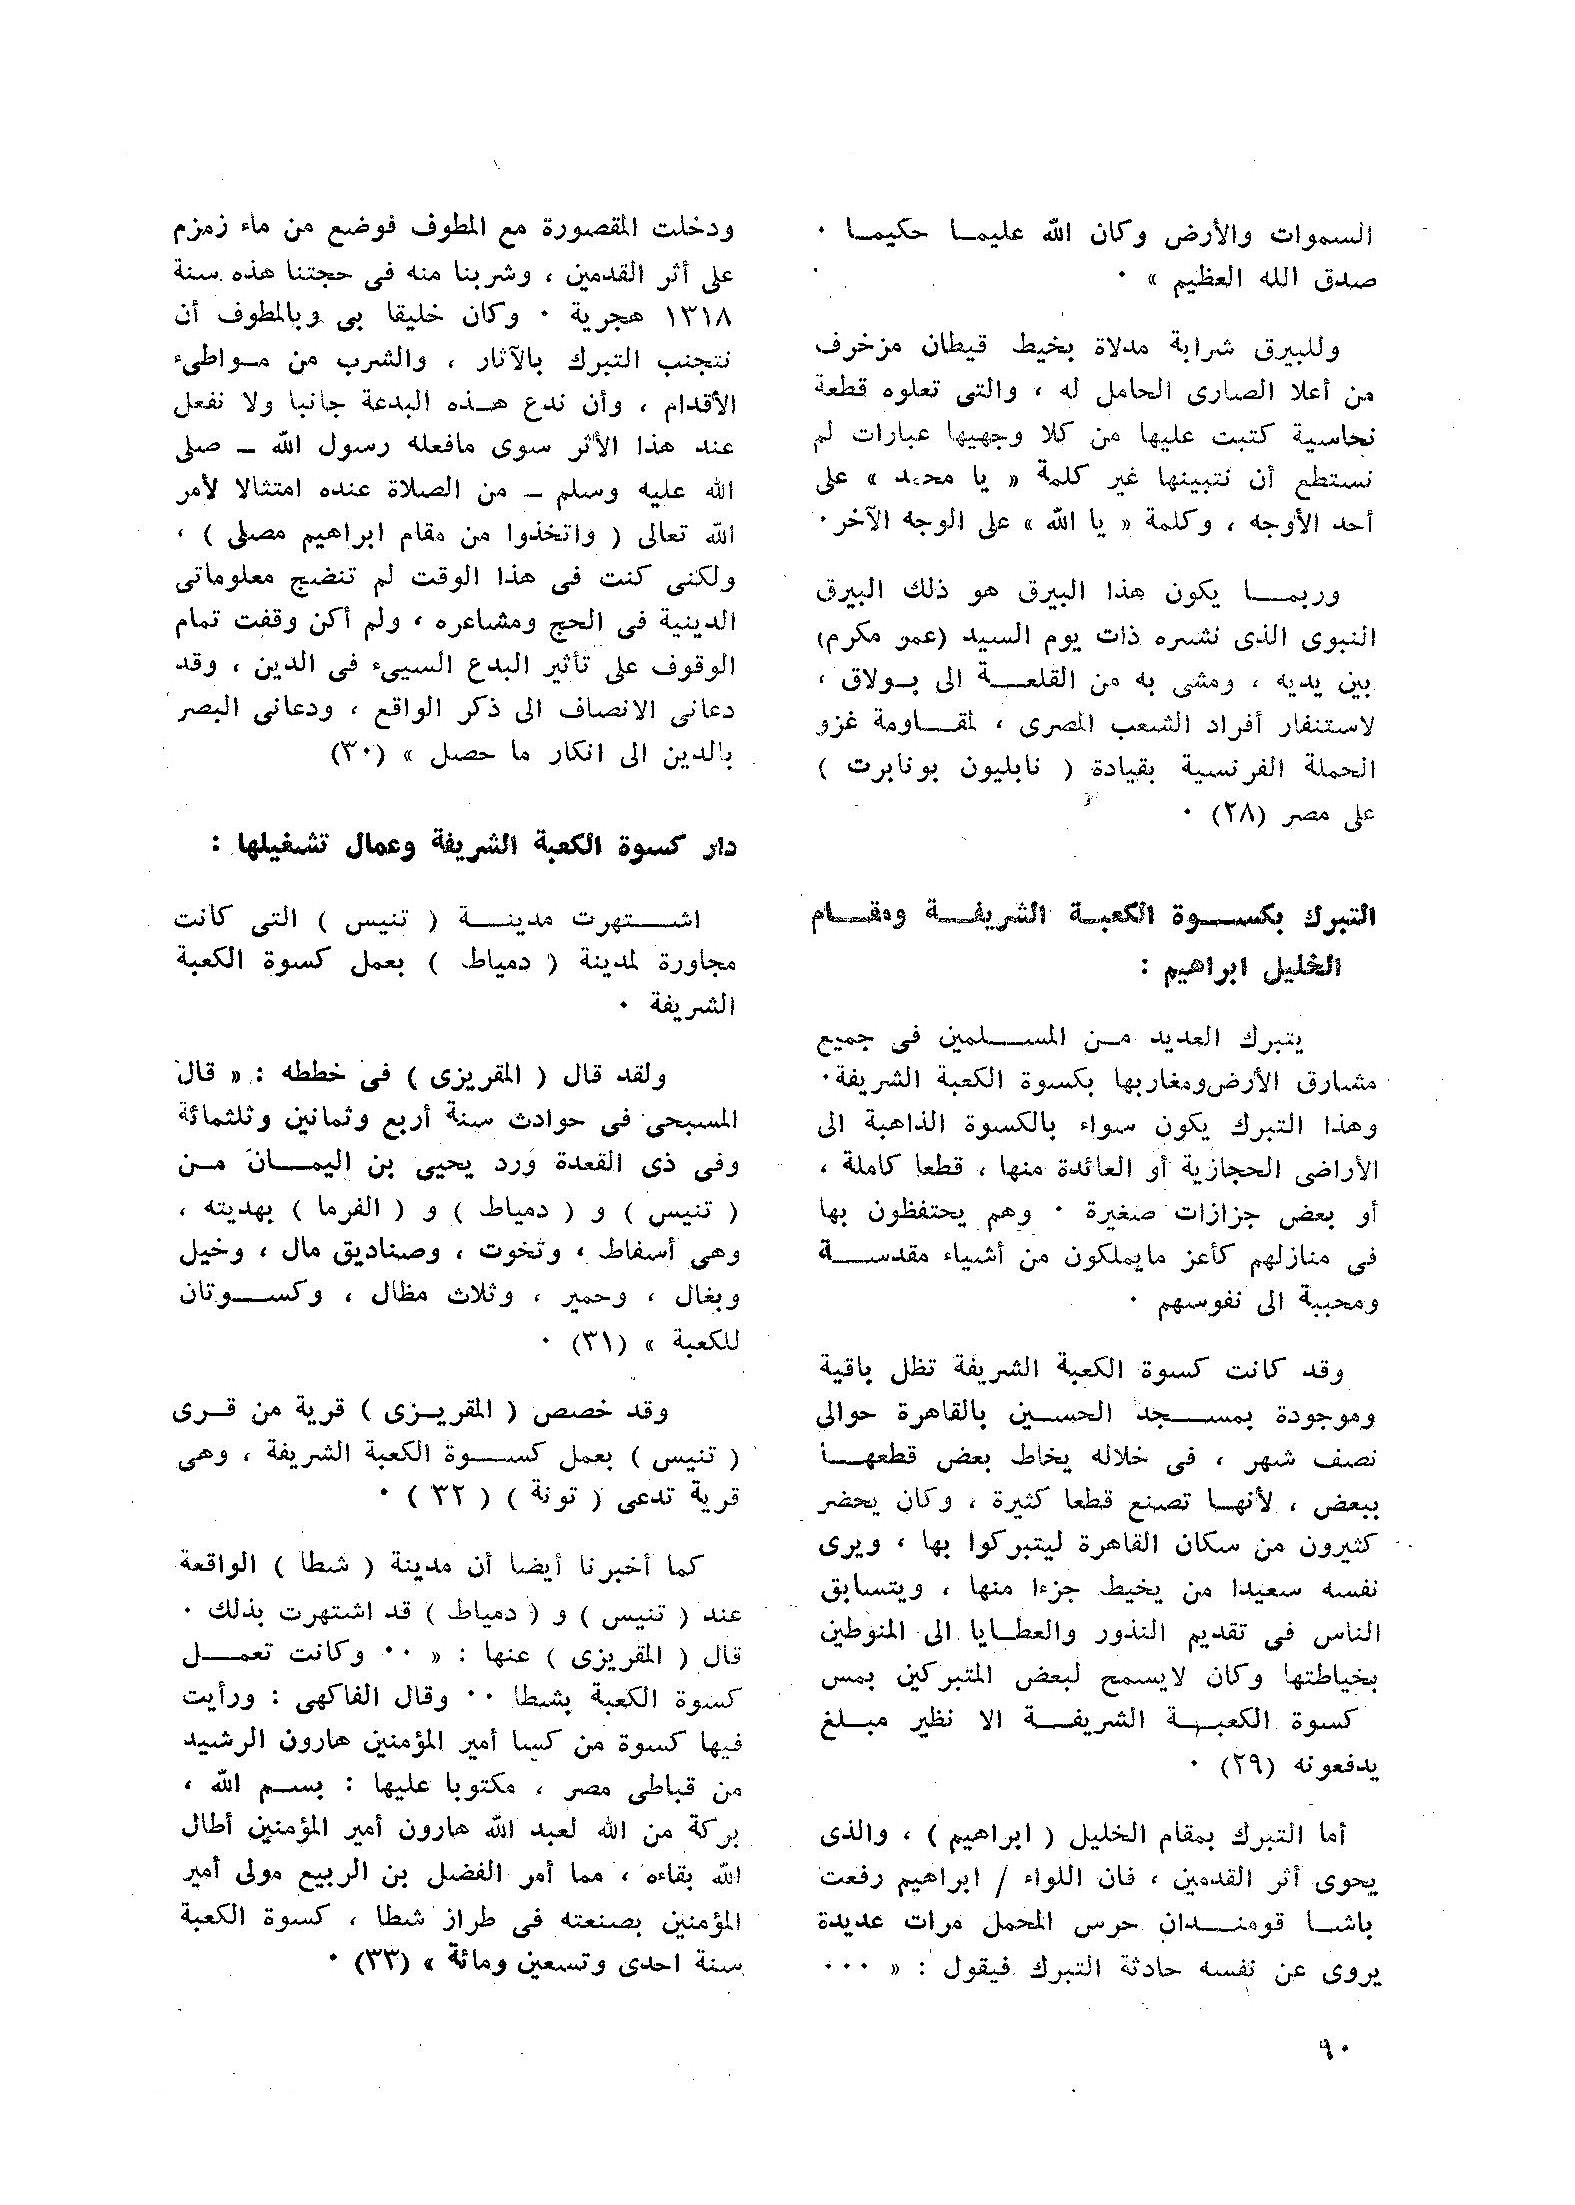 السموات والأرض وكان الله عليما حكيما ٠
صدق الله العظيم » ٠
وللبيرق شرابة مدلاة بخيط قيطان مزخرف
من أعلا الصارى الحامل له ، والتى تعلوه قطعة
نحاسية كتبت عليها من كلا وجهيها عبارات لم
نستطع أن نتبينها غير كلمة « يا محمد » على
أحد الأوجه ، وكلمة « يا الله » على الوجه الآخر ٠
وربما يكون هذا البيرق هو ذلك البيرق
النبوى الذى نشره ذات يوم السيد (عمر مكرم)
بين يديه ، ومشى به من القلعة الى بولاق ،
لاستنفار أفراد الشعب المصرى ، لمقاومة غزو
الحملة الفرنسية بقيادة ( نابليون بونابرت )
على مصر (٢٨) ٠
التبرك بكسوة الكعبة الشريفة ومقام
الخليل ابراهيم :
يتبرك العديد من المسلمين فى جميع
مشارق الأرض ومغاربها بكسوة الكعبة الشريفة ٠
وهذا التبرك يكون سواء بالكسوة الذاهبة الى
الأراضى الحجازية أو العائدة منها ، قطعا كاملة ،
أو بعض جزازات صغيرة ٠ وهم يحتفظون بها
فى منازلهم كأعز مايملكون من أشياء مقدسة
ومحببة الى نفوسهم ٠
وقد كانت كسوة الكعبة الشريفة تظل باقية
وموجودة بمسجد الحسين بالقاهرة حوالى
نصف شهر ، فى خلاله يخاط بعض قطعها
ببعض ، لأنها تصنع قطعا كثيرة ، وكان يحضر
كثيرون من سكان القاهرة ليتبركوا بها ، ويرى
نفسه سعيدا من يخيط جزءا منها ، ويتسابق
الناس فى تقديم النذور والعطايا الى المنوطين
بخياطتها وكان لايسمح لبعض المتبركين بمس
كسوة الكعبة الشريفة الا نظير مبلغ
يدفعونه (٢٩) ٠
أما التبرك بمقام الخليل ( ابراهيم ) ، والذى
يحوى أثر القدمين ، فان اللواء / ابراهيم رفعت
باشا قومندان حرس المحمل مرات عديدة
يروى عن نفسه حادثة التبرك فيقول : « ٠٠٠
ودخلت المقصورة مع المطوف فوضع من ماء زمزم
على أثر القدمين ، وشربنا منه فى حجتنا هذه سنة
١٣١٨ هجرية ٠ وكان خليقا بى وبالمطوف أن
نتجنب التبرك بالآثار ، والشرب من مواطىء
الأقدام ، وأن ندع هذه البدعة جانبا ولا نفعل
عند هذا الأثر سوى مافعله رسول الله ـ صلى
الله عليه وسلم ـ من الصلاة عنده امتثالا لأمر
الله تعالى ( واتخذوا من مقام ابراهيم مصلى ) ،
ولكنى كنت فى هذا الوقت لم تنضج معلوماتى
الدينية فى الحج ومشاعره ، ولم أكن وقفت تمام
الوقوف على تأثير البدع السيىء فى الدين ، وقد
دعانى الانصاف الى ذكر الواقع ، ودعانى البصر
بالدين الى انكار ما حصل » (٣٠)
دار كسوة الكعبة الشريفة وعمال تشغيلها :
اشتهرت مدينة ( تنيس ) التى كانت
مجاورة لمدينة ( دمياط ) بعمل كسوة الكعبة
الشريفة ٠
ولقد قال ( المقريزى ) فى خططه : « قال
المسبحى فى حوادث سنة أربع وثمانين وثلثمائة
وفى ذى القعدة ورد يحيى بن اليمان من
( تنيس ) و ( دمياط ) و ( الفرما ) بهديته ،
وهى أسفاط ، وتخوت ، وصناديق مال ، وخيل
وبغال ، وحمير ، وثلاث مظال ، وكسوتان
للكعبة » (٣١) ٠
وقد خصص ( المقريزى ) قرية من قرى
( تنيس ) بعمل كسوة الكعبة الشريفة ، وهى
قرية تدعى ( تونة ) ( ٣٢ ) ٠
كما أخبرنا أيضا أن مدينة ( شطا ) الواقعة
عند ( تنيس ) و ( دمياط ) قد اشتهرت بذلك ٠
قال ( المقريزى ) عنها : « ٠٠ وكانت تعمل
كسوة الكعبة بشطا ٠٠ وقال الفاكهى : ورأيت
فيها كسوة من كسا أمير المؤمنين هارون الرشيد
من قباطى مصر ، مكتوبا عليها : بسم الله ،
بركة من الله لعبد الله هارون أمير المؤمنين أطال
الله بقاءه ، مما أمر الفضل بن الربيع مولى أمير
المؤمنين بصنعته فى طراز شطا ، كسوة الكعبة
سنة احدى وتسعين ومائة » (٣٣) ٠
٩٠